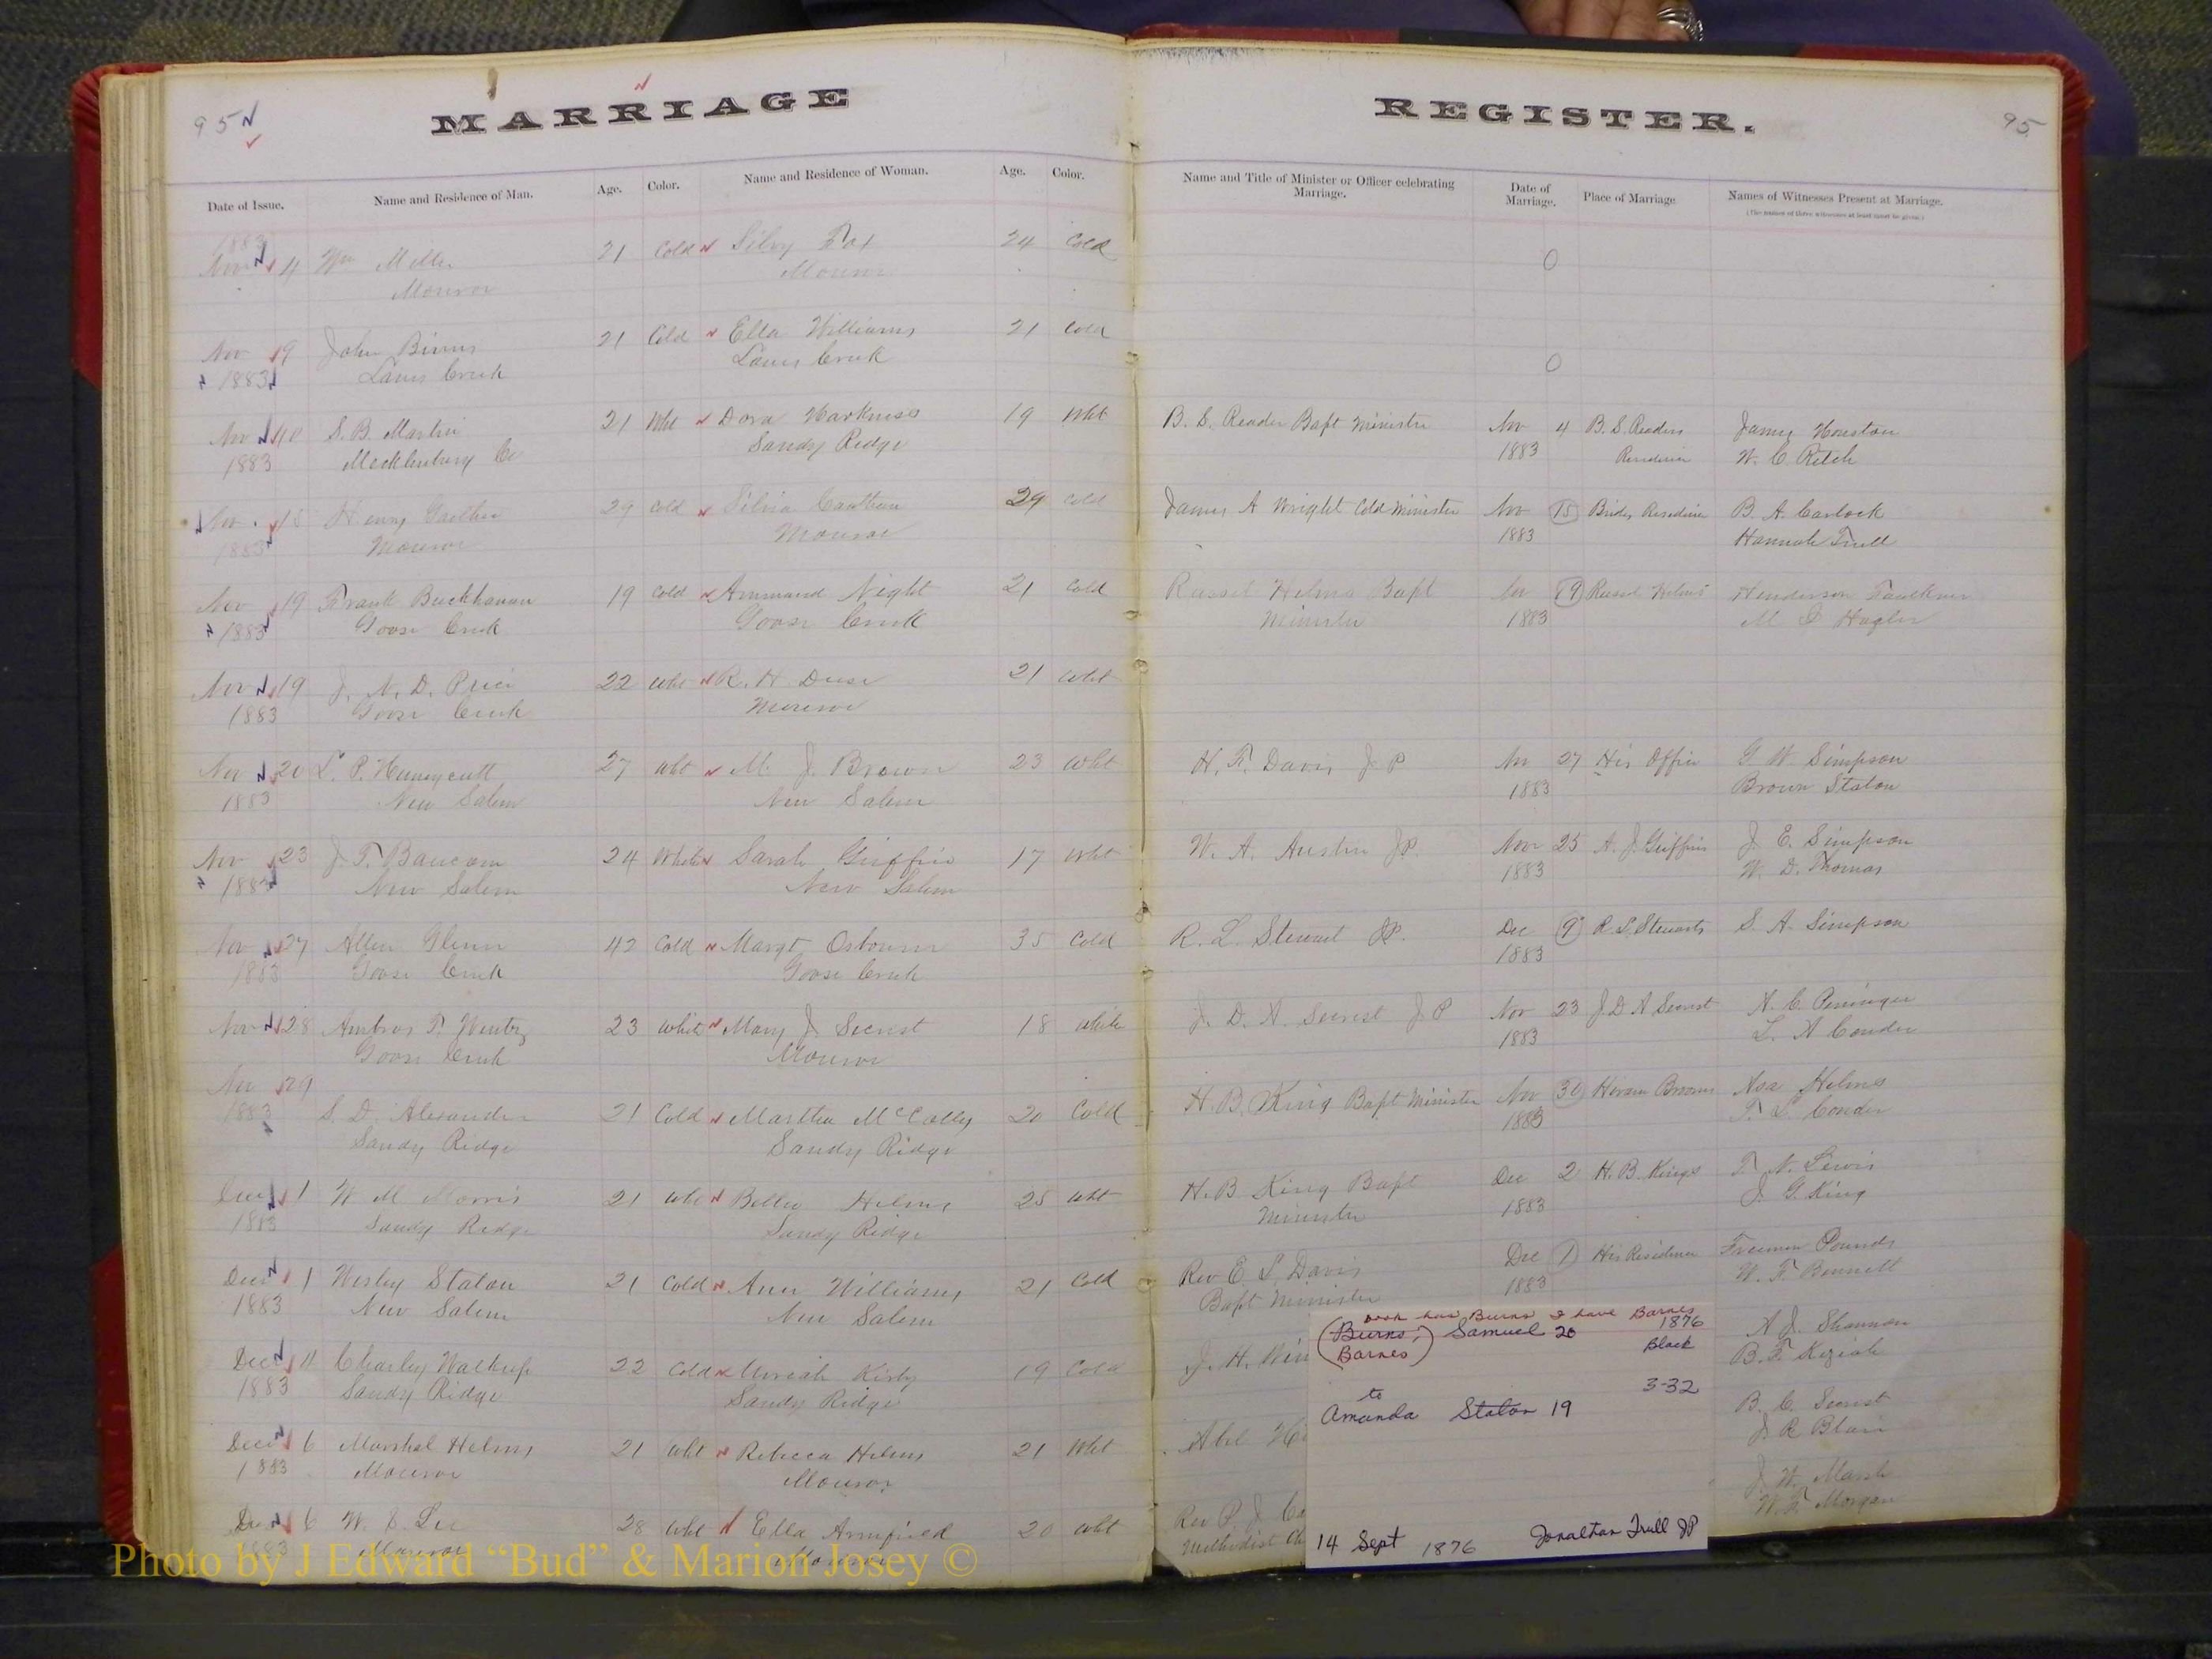 95
MARRIAGE
Date of Issue.
Name and Residence of Man.
Age.
Color.
Name and Residence of Woman.
Age.
Color.
1883
Nov 4 Wm Miller 21 Cold Silvy Fox 24 Cold
Monroe Monroe
Nov 9 John Bivins 21 Cold Ella Williams 21 Cold
1883 Lanes Creek Lanes Creek
Nov 10 S. B. Martin 21 Wht Dora Harkness 19 Wht
1883 Mecklenburg Co Sandy Ridge
Nov 15 Henry 29 Cold Silvia 29 Cold
1883 Monroe Monroe
Nov 19 Frank Buckhanan 19 Cold Ammand Night 21 Cold
1883 Goose Creek Goose Creek
Nov 19 J. N. D. Price 22 Wht R. H. 21 Wht
1883 Goose Creek Monroe
Nov 20 L. P. Huneycutt 27 Wht M. J. Brown 23 Wht
1883 New Salem New Salem
Nov 23 J. T. Baucom 24 White Sarah Griffin 17 Wht
1883 New Salem New Salem
Nov 27 Allen Glenn 42 Cold Margt Osbourn 35 Cold
1883 Goose Creek Goose Creek
Nov 28 Ambros P. Wentz 23 White Mary J Secrest 18 White
Goose Creek Monroe
Nov 29
1883 S. D. Alexander 21 Cold Martha McColly 20 Cold
Sandy Ridge Sandy Ridge
Dec 1 W M Morris 21 Wht Bettie Helms 25 Wht
1883 Sandy Ridge Sandy Ridge
Dec 1 Wesley Staton 21 Cold Ann Williams 21 Cold
1883 New Salem New Salem
Dec 4 Charley Walkup 22 Cold Kirby 19 Cold
1883 Sandy Ridge Sandy Ridge
Dec 6 Marshal Helms 21 Wht Rebecca Helms 21 Wht
1883 Monroe Monroe
Dec 6 W. Lee 28 Wht Ella Armfield 20 Wht
1883 Monroe Monroe
REGISTER.
95
Name and Title of Minister or Officer celebrating
Marriage.
Date of
Marriage.
Place of Marriage
Names of Witnesses Present at Marriage.
(The names of three witnesses at least must be given.)
0
0
B. S. Reader Bapt Minister Nov 4 B. S. Readers James Houston
1883 Residence W. C. Ritch
James A Wright Cold Minister Nov 15 Brides Residence B. A. Carlock
1883 Hannah Trull
Russel Helms Bapt Nov 19 Russel Helms Henderson Faulkner
Minister 1883 M Hagler
H. F. Davis J P Nov 27 His Office G W. Simpson
1883 Brown Staton
W. A. Austin J.P. Nov 25 A. J. Griffins J. E. Simpson
1883 W. D. Thomas
R. L. Stewart J.P. Dec 9 R. L. Stewarts S. A. Simpson
1883
J. D. A. Secrest J P Nov 23 J. D A Secrest
1883 L. A Conder
H. B. King Bapt Minister Nov 30 Hiram Browns Asa Helms
1883 T. L. Conder
H. B King Bapt Dec 2 H. B. Kings T. N. Lewis
Minister 1883 J. G. King
Rev E. L. Davis Dec 1 His Residence Freeman Pounds
Bapt Minister 1883 W. F. Bennett
J. H. Win A J. Shannon
B. F. Keziah
Abel B. C. Secrest
J R Blair
Rev P. J. Ca J. W. Marsh
Methodist Ch W. F. Morgan
book has Burns I have Barnes
(Burns; Barnes) Samuel 20 1876
Black
to 3-32
Amanda Staton 19
14 Sept 1876 Jonathan Trull JP
Photo by J Edward “Bud” & Marion Josey ©